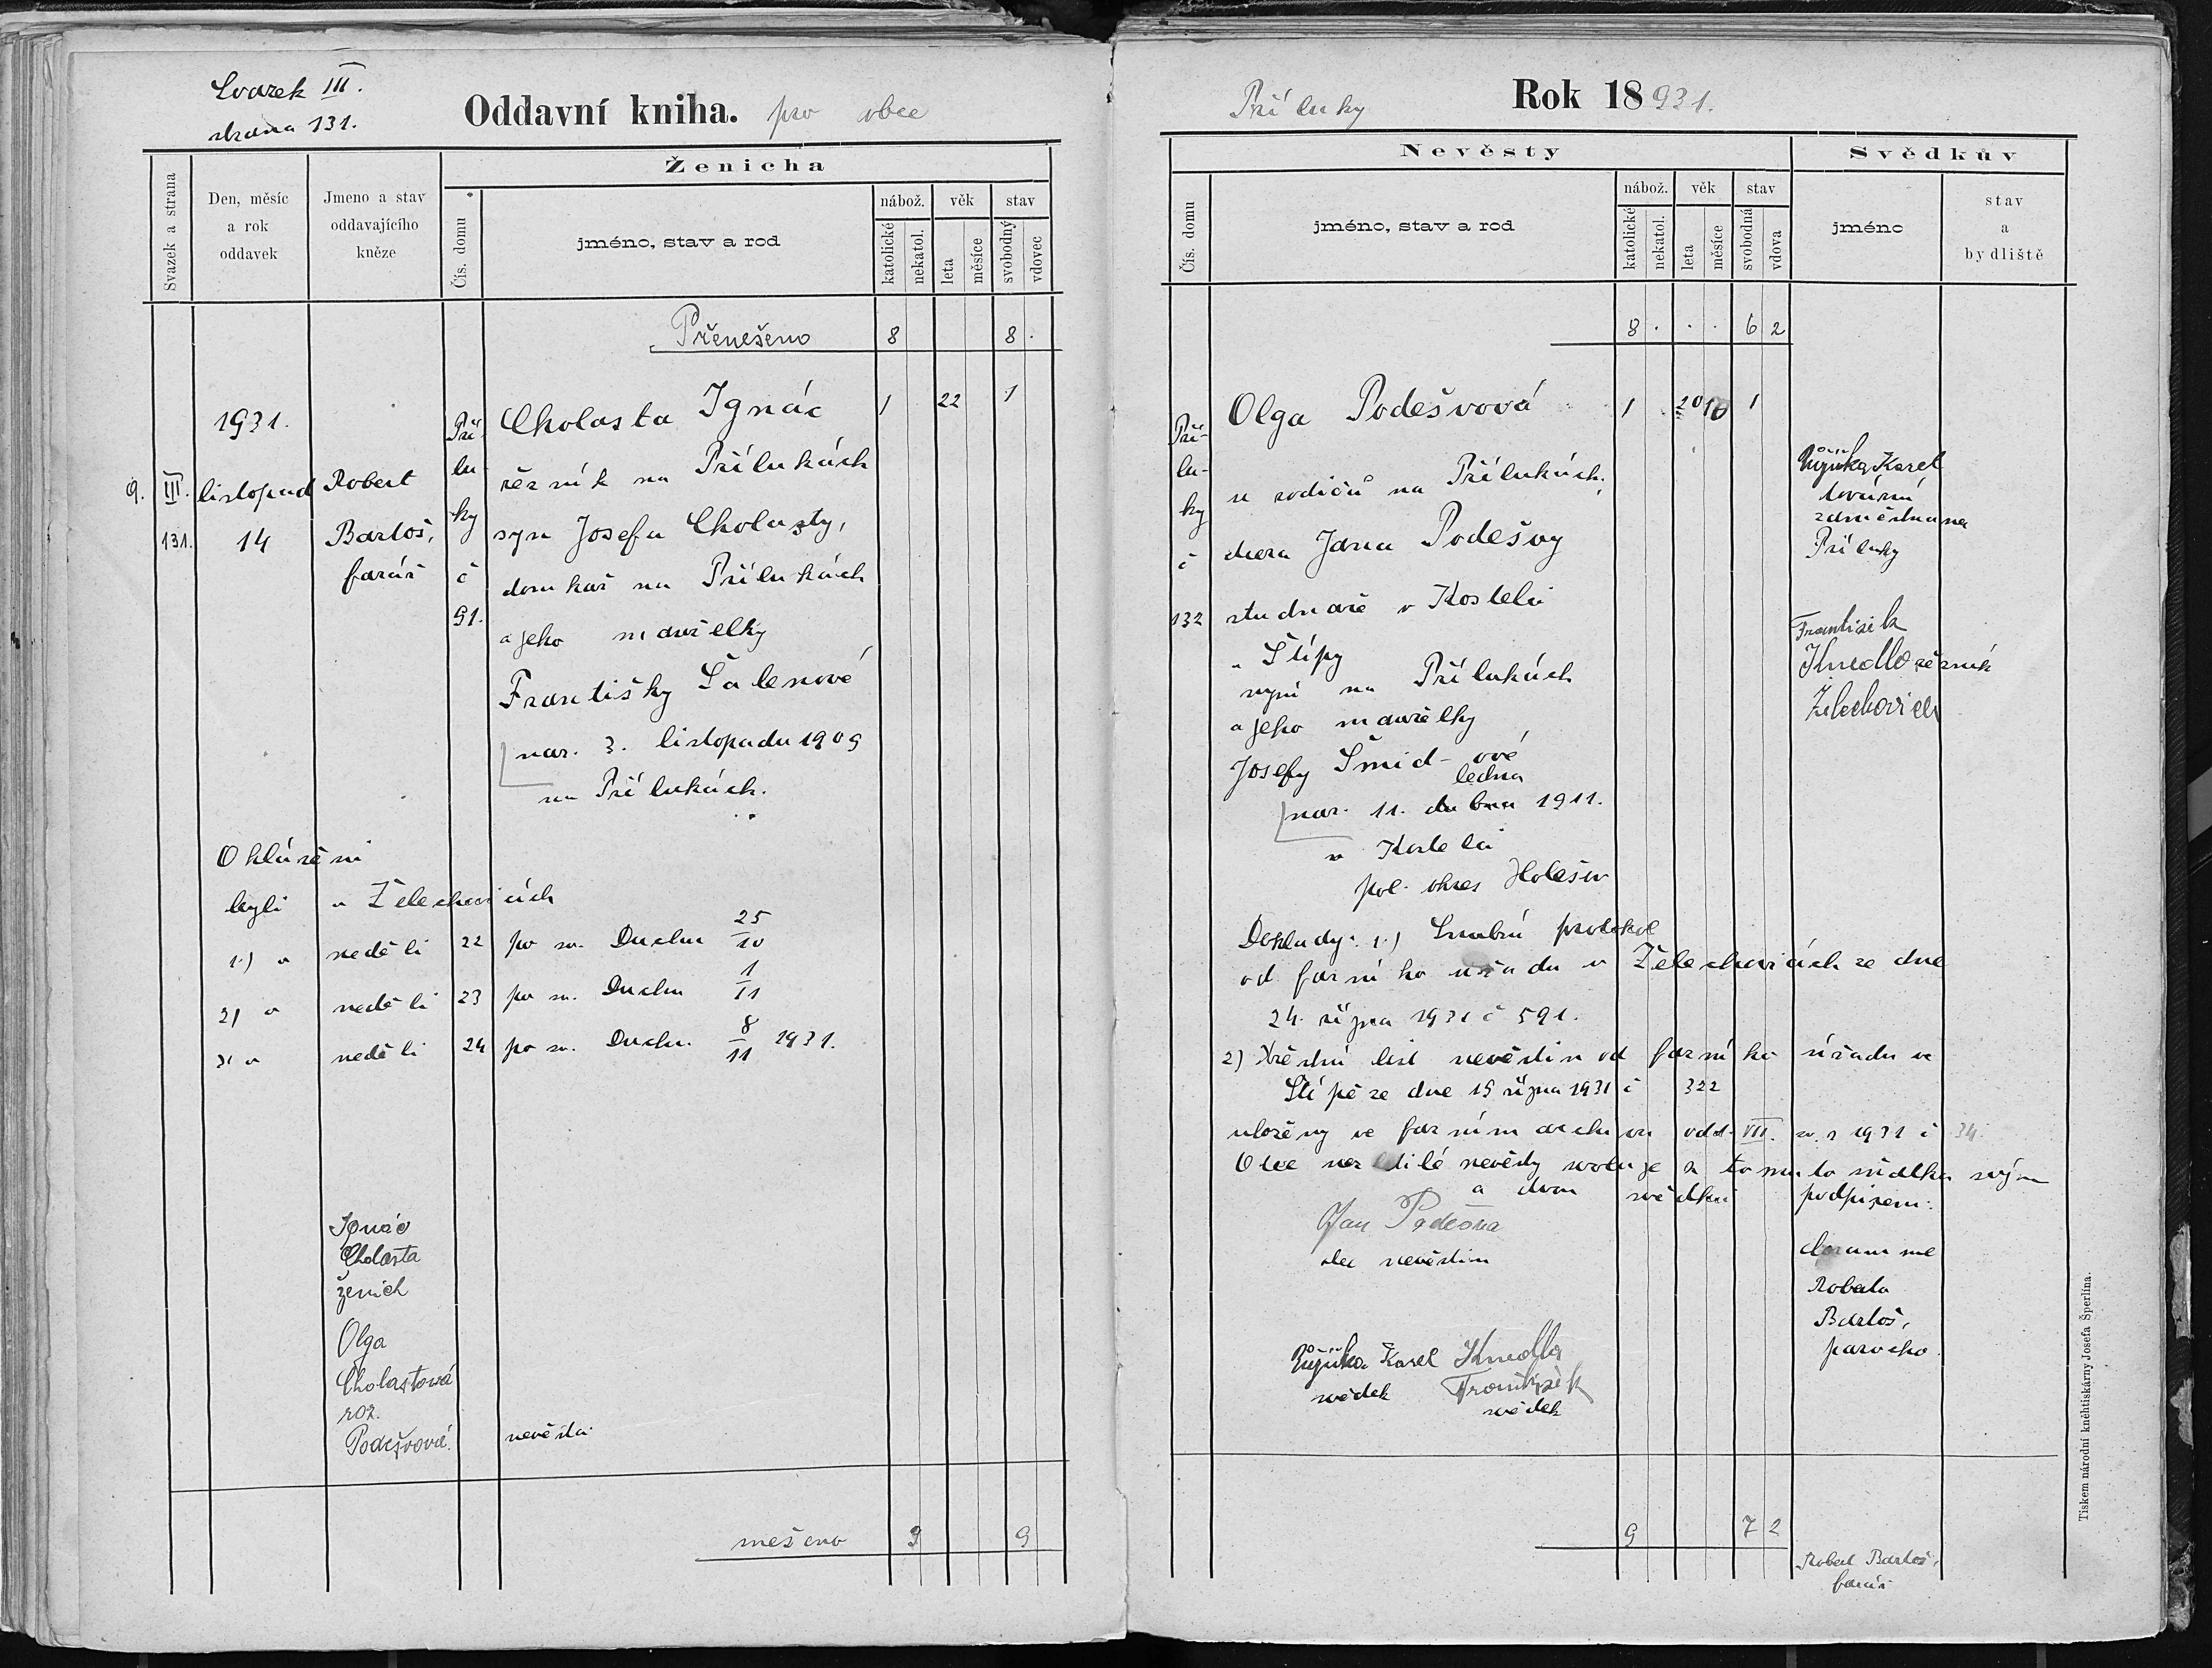 Svazek III.
strana 131.
Oddavní kniha. pro obce
Svazek a strana
Den, měsíc
a rok
oddavek
Jmeno a stav
oddavajícího
kněze
Ženicha
Čís. domu
jméno, stav a rod
nábož.
katolické
nekatol.
věk
leta
měsíce
stav
svobodný
vdovec
Přenešeno 8 8 .
1931.
9. III. listopad
131. 14
Robert
Bartoš,
farář
Pří-
lu-
ky
č
91.
Cholasta Ignác 1 22 1
řezník na Přílukách
syn Josefa Cholasty,
domkař na Přílukách
a jeho manželky
Františky Šalenové
nar. 3. listopadu 1909
na Přílukách.
Ohlášeni
byli v Želechovicích
1.) v neděli 22 po sv. Duchu 25/10
2) v neděli 23 po sv. Duchu 1/11
3) v neděli 24 po sv. Duchu 8/11 1931.
Ignác
Cholasta
ženich
Olga
Cholastová
roz.
Podešvová. nevěsta
nešeno 9 9
Příluky Rok 18931.
Nevěsty
Čís. domu
jméno, stav a rod
nábož.
katolické
nekatol.
věk
leta
měsíce
stav
svobodná
vdova
Svědkův
jméno
stav
a
bydliště
8 . . . 6 2
Pří-
lu-
ky
č
132
Olga Podešvová 1 20 1
u rodičů na Přílukách.
dcera Jana Podešvy
studnaře v Kostelci
u Štípy
nyní na Přílukách
a jeho manželky
Josefy Šmid-ové
ledna
nar. 11. dubna 1911.
v Kostelci
pol. okres Holešov
Karel
tovární
zaměstnanec
Příluky
František
Knedla řezník
Želechovice
Doklady: 1.) Snubní protokol
od farního úřadu v Želechovicích ze dne
24. října 1931 č 591.
2) Křestní list nevěstin od farního úřadu ve
Štípě ze dne 15 října 1931 č 322
uloženy ve farním archivu odd. VII. sv. 2 1931 č 34.
Otec nezletilé nevěsty svoluje k tomuto sňatku svým
a dvou svědků podpisem:
Jan Podešva
otec nevěstin
coram me
Roberto
Bartoš,
parocho
Karel
svědek
Knedla
František
svědek
9 7 2
Robert Bartoš,
farář
Tiskem národní kněhtiskárny Josefa Šperlína.